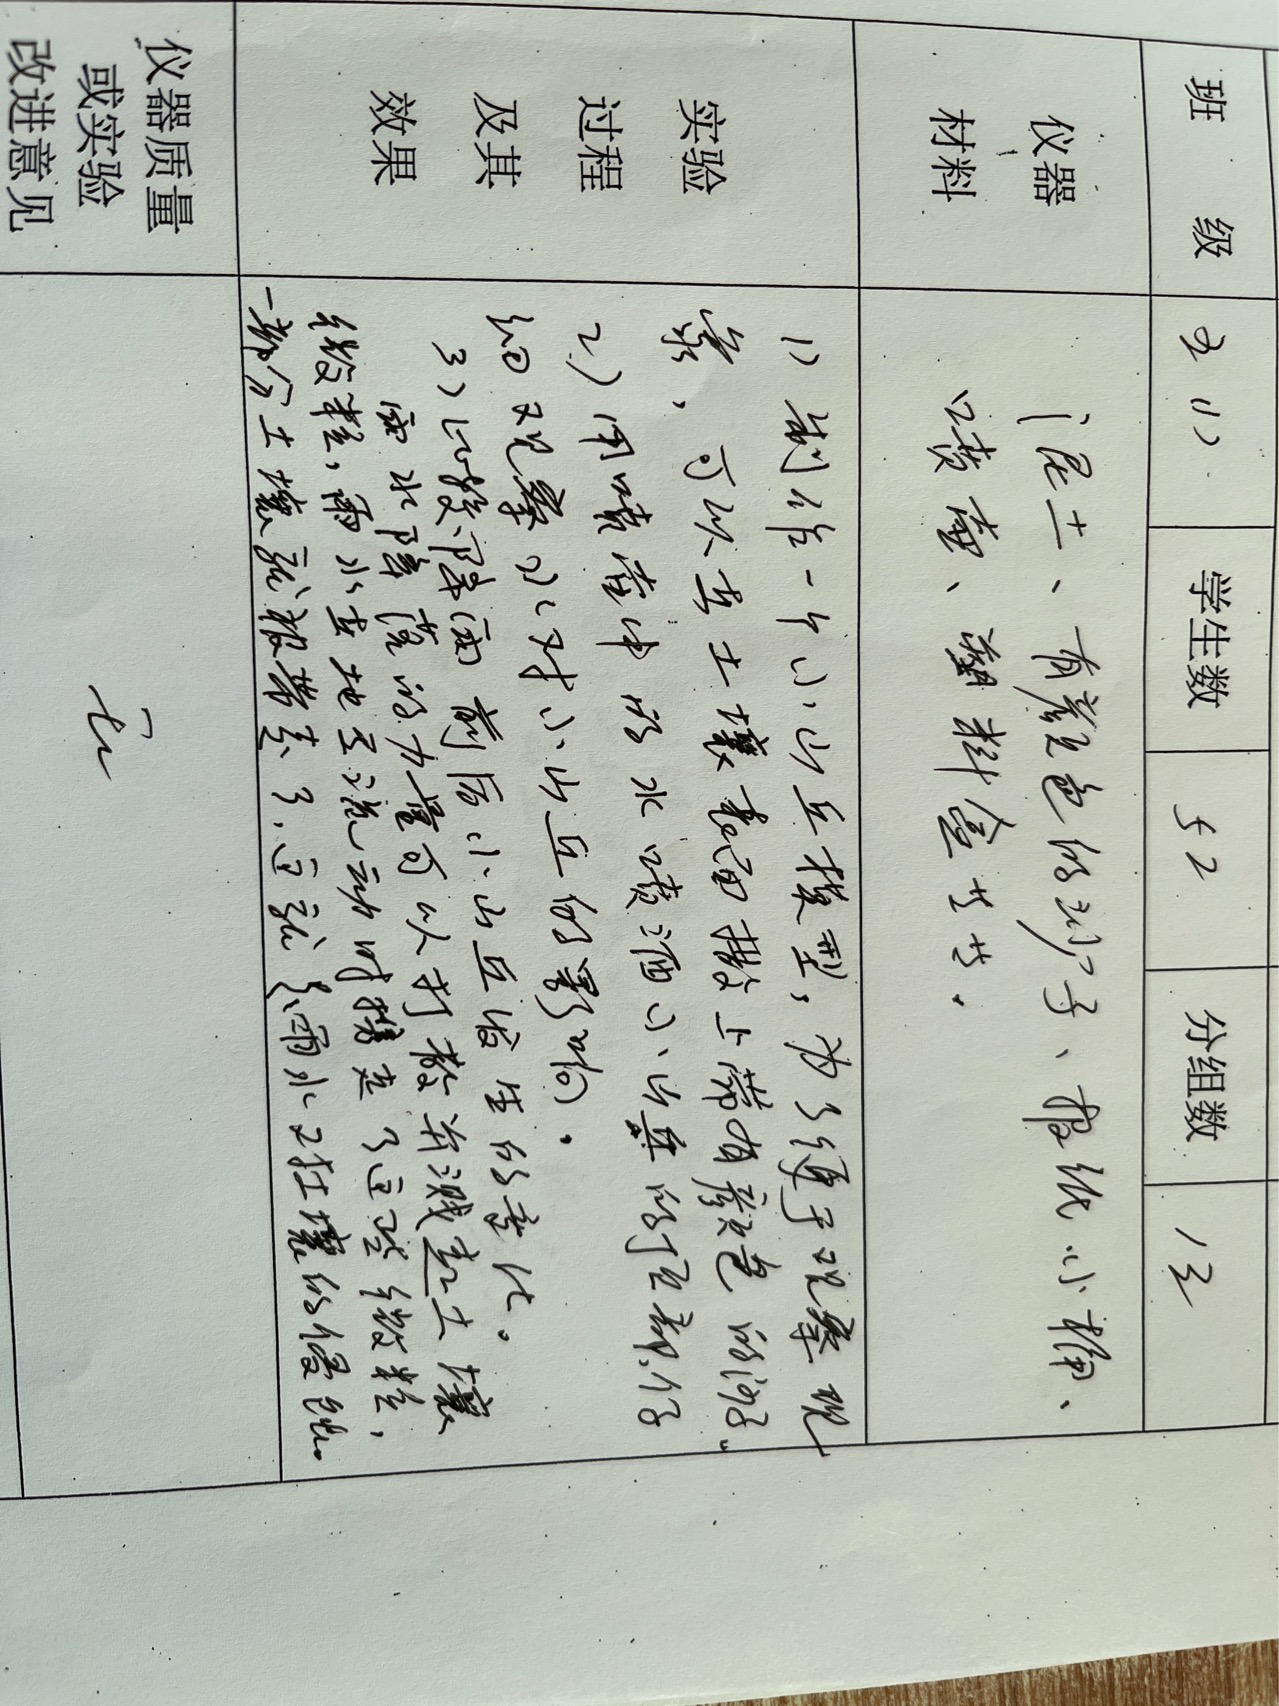 班 级 五(1) 学生数 52 分组数 13
仪器
材料
泥土、有颜色的沙子、报纸、小桶、
喷壶、塑料盒等等。
实验
过程
及其
效果
1) 制作一个小山丘模型,为了便于观察现
象,可以在土壤表面撒上带有颜色的沙子。
2) 用喷壶中的水喷洒小山丘的顶部,仔
细观察水对小山丘的影响。
3) 比较降雨前后小山丘发生的变化。
雨水降落的力量可以打散并溅起土壤
微粒,雨水在地面流动时携走了这些微粒,
一部分土壤就被带走了,这就是雨水对土壤的侵蚀。
仪器质量
或实验
改进意见
无